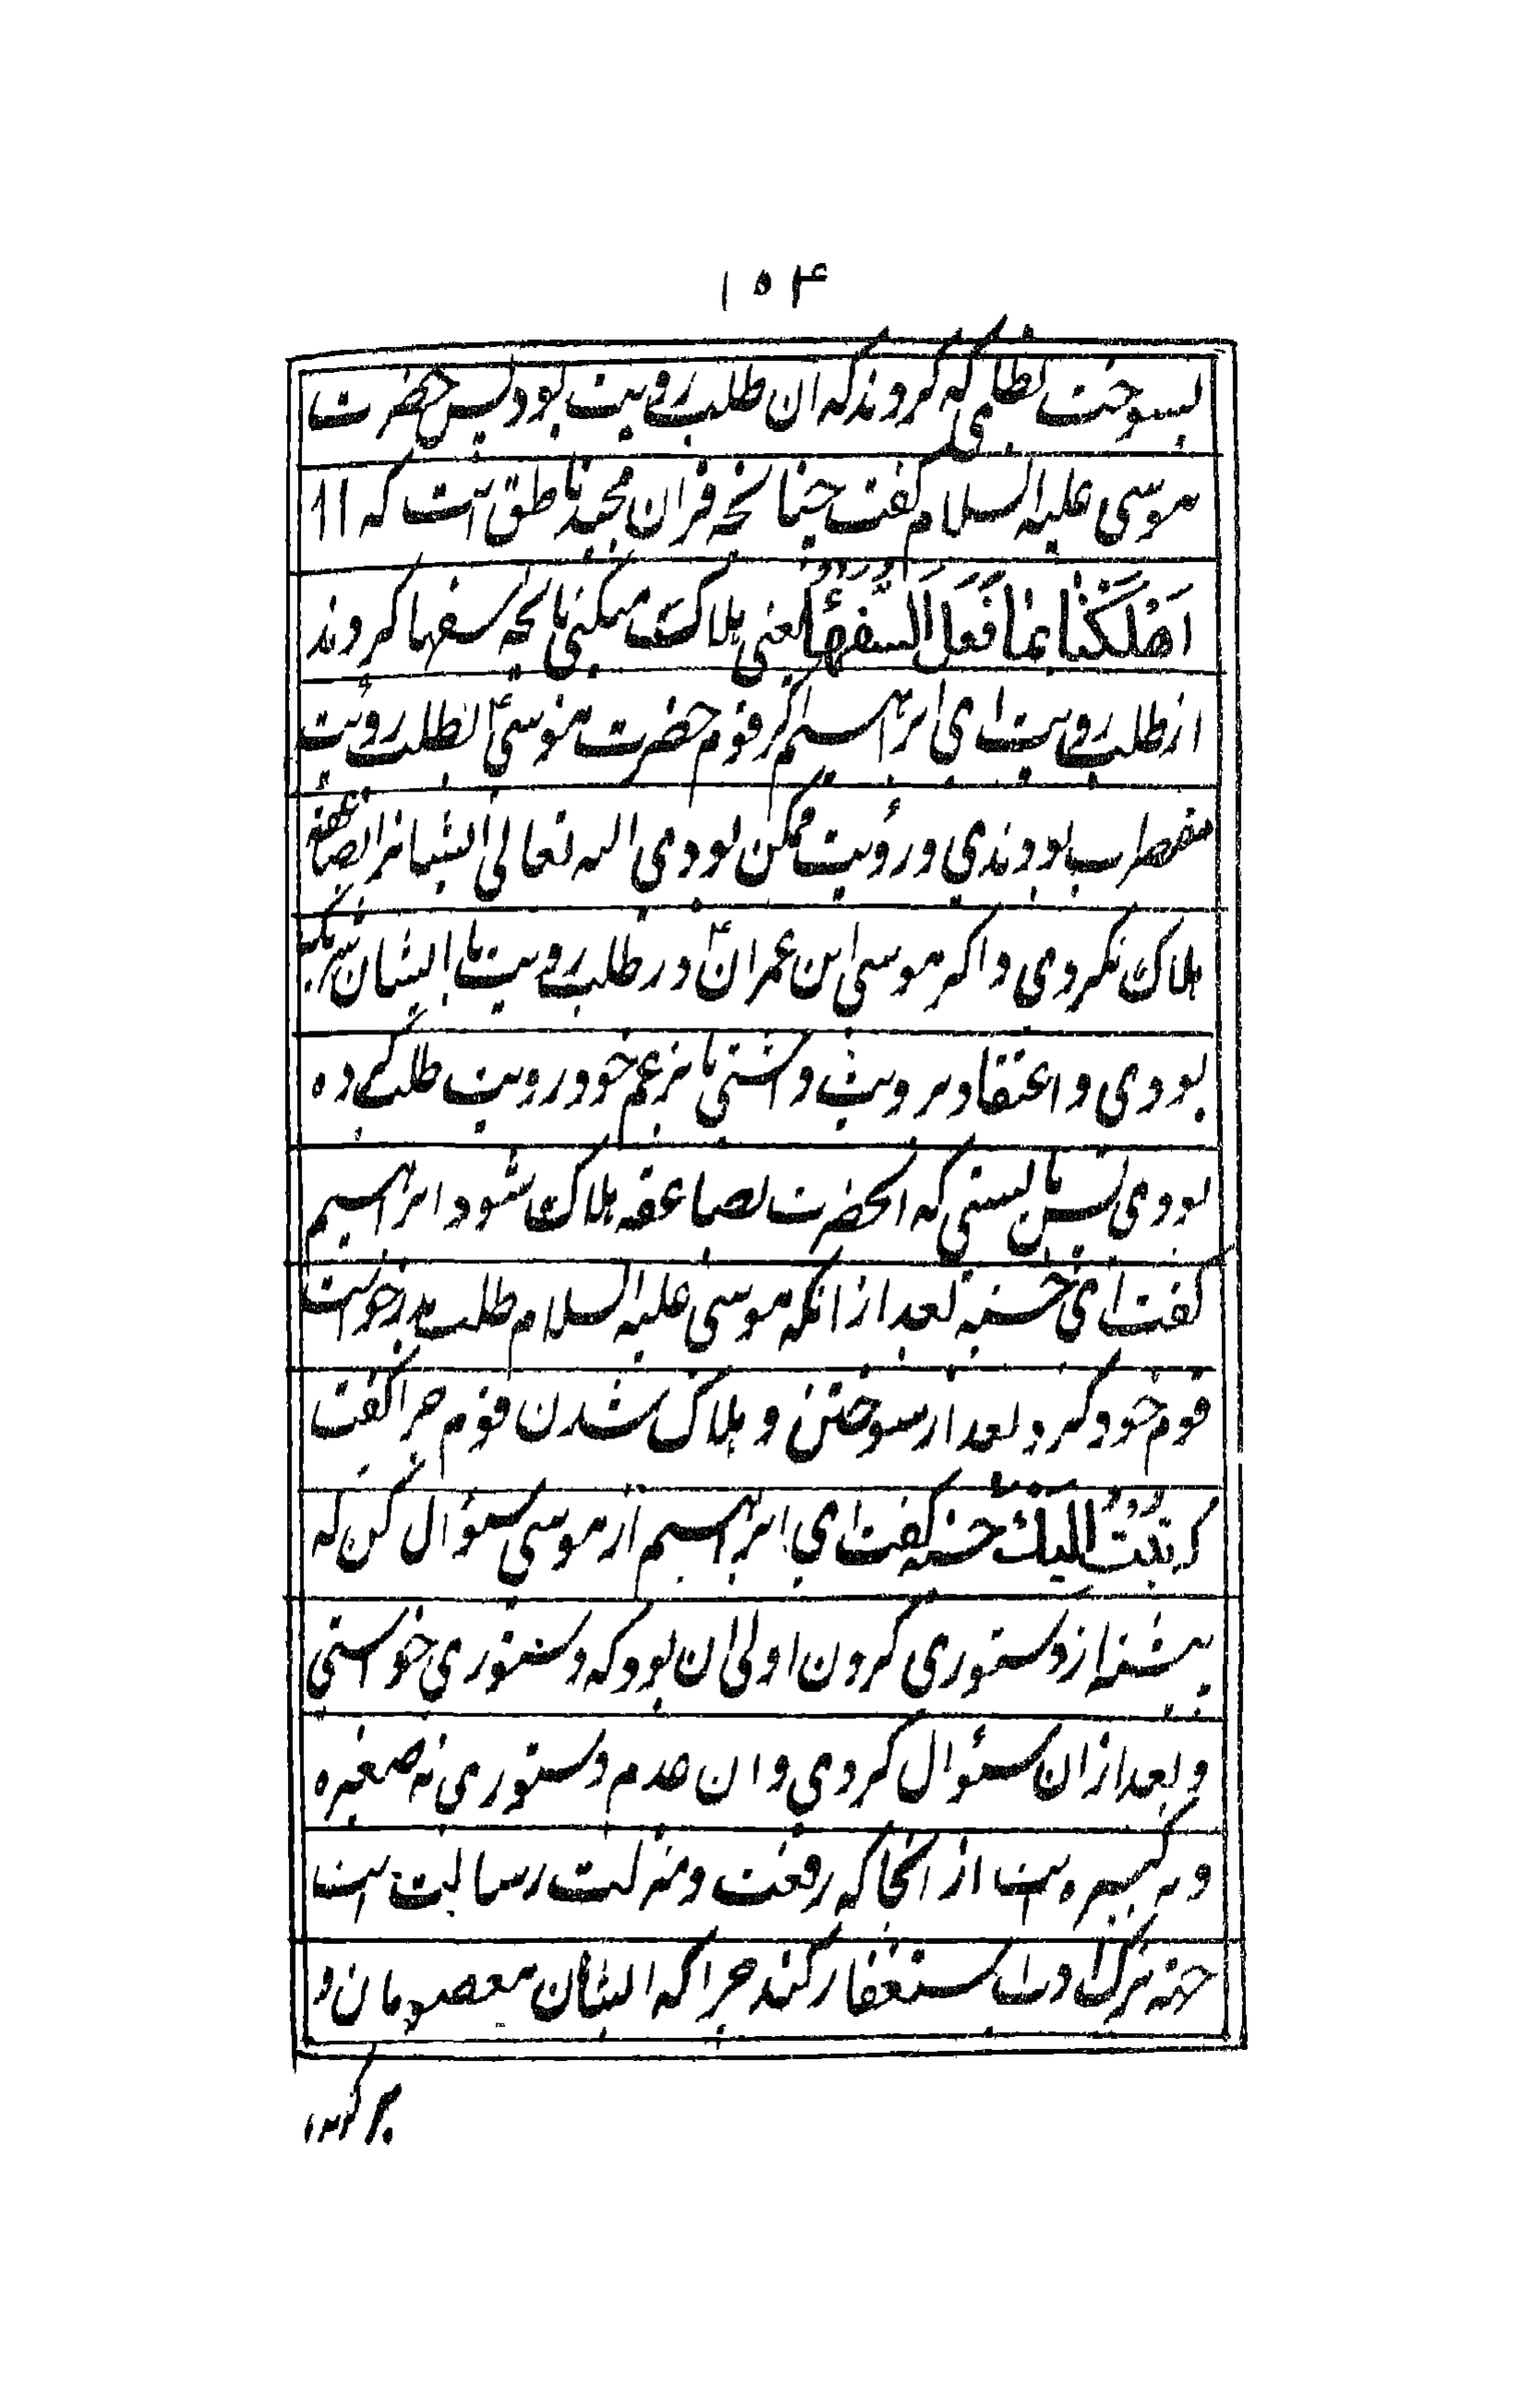 ۱۵۴
بسوخت بظلمی که کردند که ان طلب رویت بود پس حضرت
موسی علیه السلام گفت چنانچه قران مجید ناطق است که ا ا
اَهْلَكْتَنا بِمَا فَعَلَ السُّفَهَاءُ یعنی هلاک میکنی بانچه سفها کردند
از طلب رویت ای ابراهیم اگر قوم حضرت موسیؑ بطلب رویت
مضطرب بودندی و رؤیت ممکن بودی الله تعالی ایشانرا بصاعقه
هلاک نکردی و اگر موسی ابن عمرانؑ در طلب رویت با ایشان شریک
بودی و اعتقاد برویت داشتی یا بزعم خود رویت طلب کرده
بودی پس بایستی که انحضرت بصاعقه هلاک شود ابراهیم
گفت ای حسنیه بعد از انکه موسی علیه السلام طلب بدرخواست
قوم خود کرد بعد از سوختن و هلاک شدن قوم چرا گفت
تُبْتُ اِلَیْكَ حسنیه گفت ای ابراهیم از موسی سئوال کن که
پیشتر از دستوری کردن اولی ان بود که دستوری خواستی
و بعد از ان سئوال کردی و ان عدم دستوری نه صغیره
و نه کبیره است از انجا که رفعت و منزلت رسالت است
چرا که ایشان معصومان و